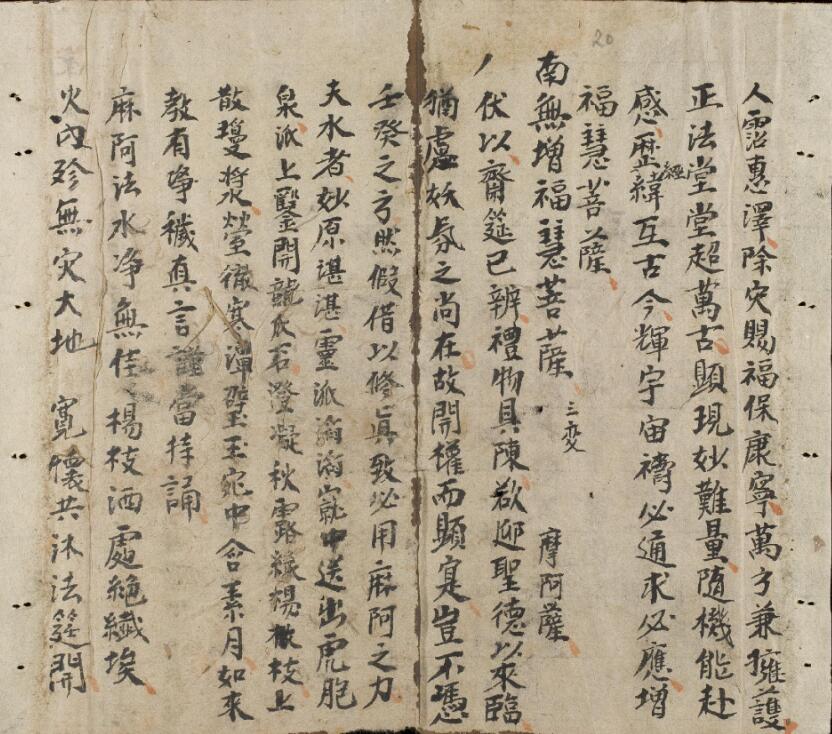 20
人霑惠澤除灾賜福保康寧萬方兼擁護
正法堂堂超萬古顯現妙難量隨機能赴
感歷經緯互古今輝宇宙禱必通求必應增
福慧菩薩
南無增福慧菩薩 三变 摩阿薩
伏以齋筵已辦禮物具陳欲迎聖德以來臨
猶慮妖氛之尚在故開權而顯寔豈不憑
壬癸之方然假借以修真致必用麻阿之力
夫水者妙原湛湛靈派滔滔巖中送出虎胞
泉派上鑿開龍 石澄凝秋露綠楊橄枝上
散瓊漿瑩徹寒潭碧玉宛中含素月如來
教有净穢真言謹當持誦
麻阿法水净無佳楊枝洒處絶纖埃
火內殄無灾大地 寬懷共沐法筵開